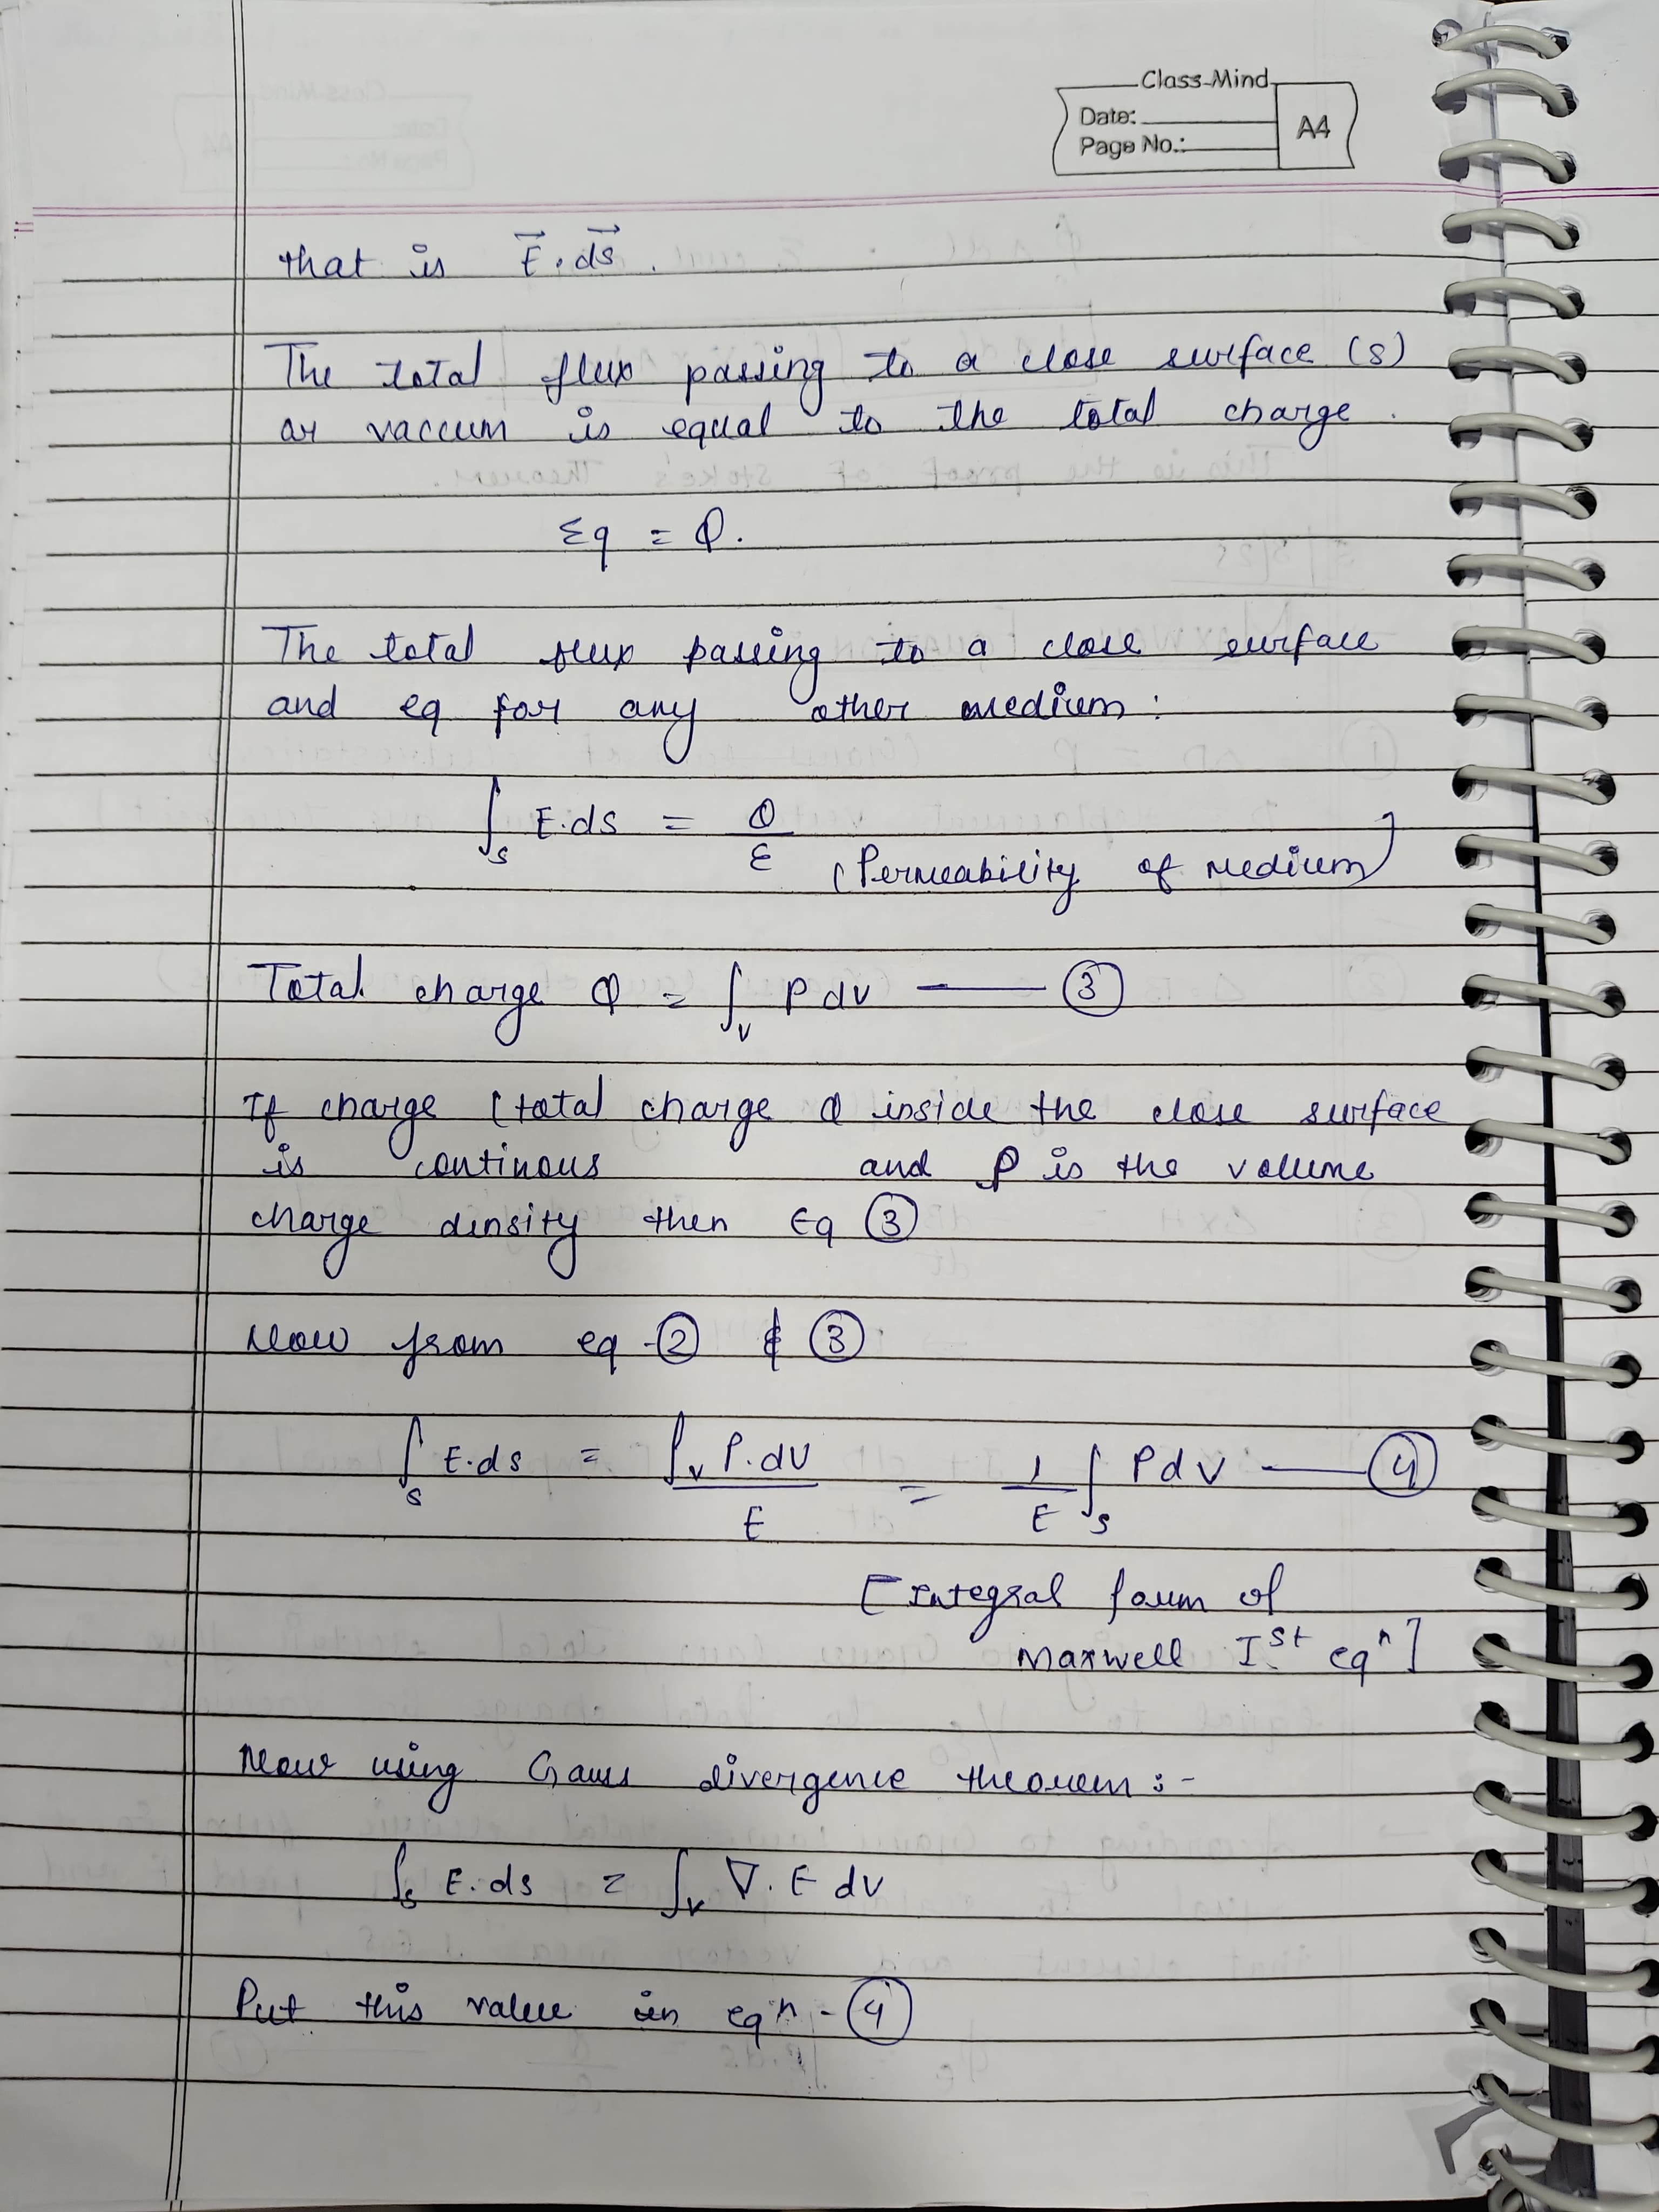 Class-Mind
Date:
Page No.:
A4
that is E⃗.ds⃗.
The total flux passing to a close surface (s)
or vaccum is equal to the total charge.
Σq = Q.
The total flux passing to a close surface
and eq for any other medium:
∫s E.ds = Q/ε (Permeability of medium)
Total charge Q = ∫v ρ dv —— ③
If charge (total charge Q inside the close surface
is continous and ρ is the volume
charge density then Eq ③
Now from eq -② & ③
∫s E.ds = ∫v ρ.dv/E = 1/E ∫s ρdv —— ④
[Integral form of
Maxwell Ist eqn]
Now using Gauss divergence theorem :-
∫s E.ds = ∫v ∇.E dv
Put this value in eqn - ④